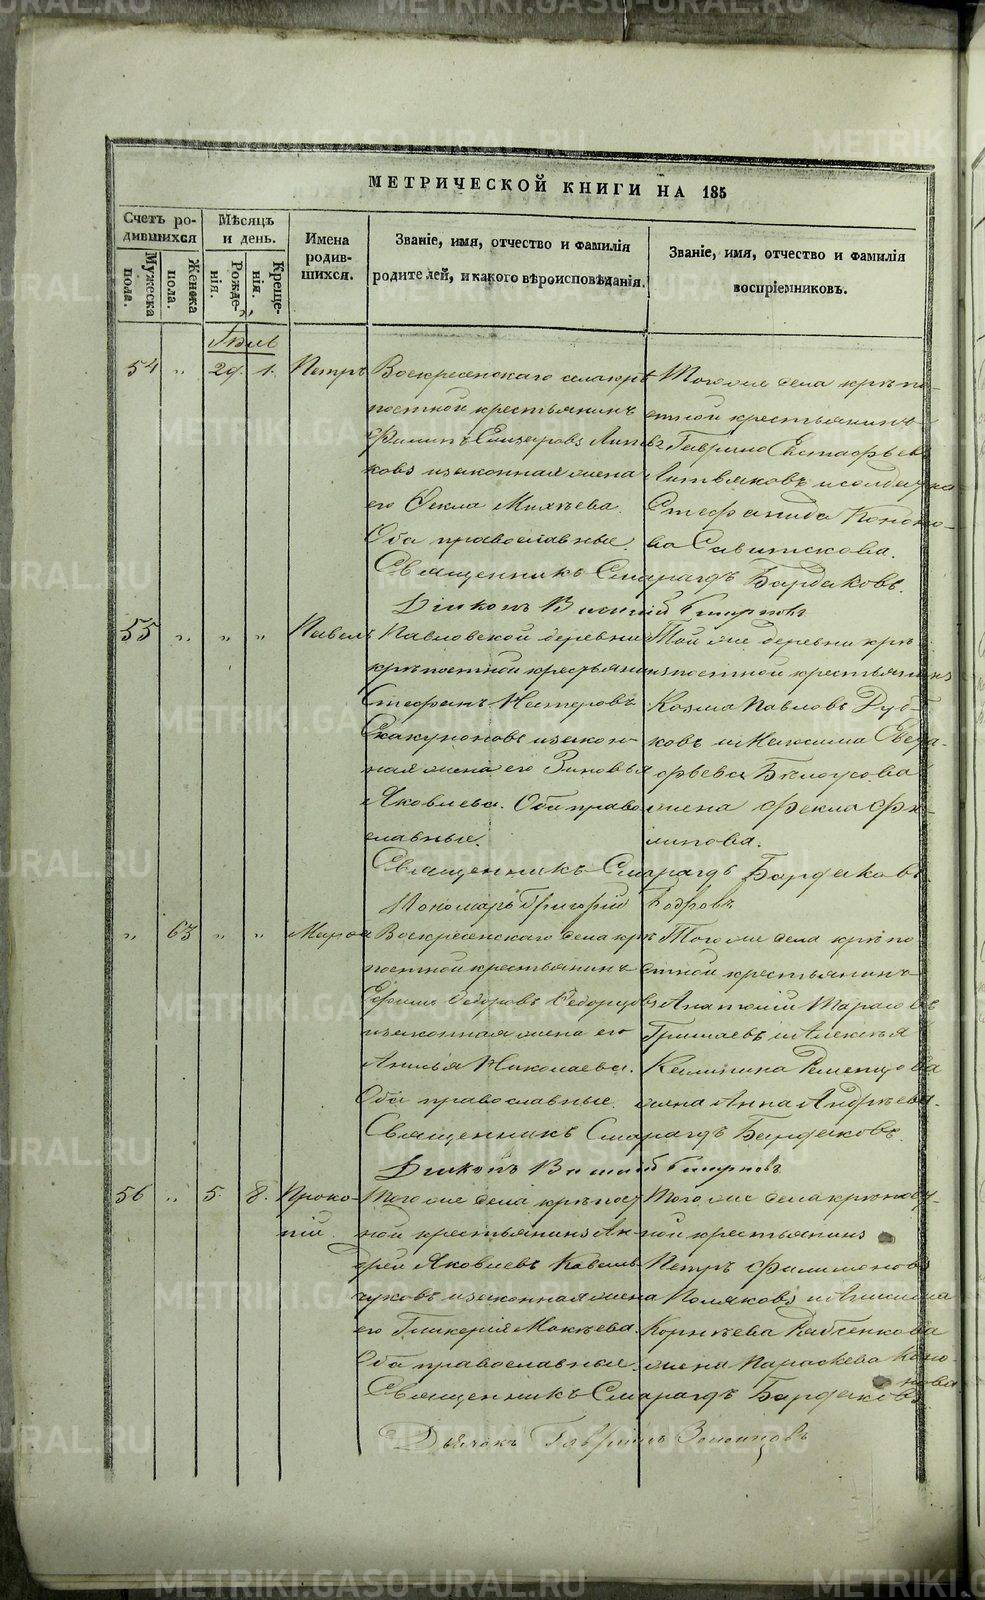 МЕТРИЧЕСКОЙ КНИГИ НА 185
Счетъ родившихся
Мужеска пола.
Женска пола.
Мѣсяцъ и день.
Рожденія.
Крещенія.
Имена родившихся.
Званіе, имя, отчество и фамилія
родителей, и какого вѣроисповѣданія.
Званіе, имя, отчество и фамилія
воспріемниковъ.
54 " 29. 1. Петръ
Воскресенскаго села крѣ-
постной крестьянинъ
Филипъ Елизаровъ Литвя-
ковъ и законная жена
его Фекла Михѣева.
Оба православные.
Того же села крѣпо-
стной крестьянинъ
Гаврило Евстафьевъ
Литвяковъ и солдатка
СтефанидаКононо-
ва Савитскова.
Священникъ Смарагдъ Бардаковъ.
Діаконъ Василій Смирновъ
55 " " " Павелъ
Павловской деревни
крѣпостной крестьянинъ
Стефанъ Несторовъ
Скакуновъ и закон-
ная жена его Зиновья
Яковлева. Оба право-
славные.
Той же деревни крѣ-
постной крестьянинъ
Козма Павловъ Дуб-
ковъ и Максима
Бѣлоусова
жена Фекла Фи-
липова.
Священникъ Смарагдъ Бардаковъ.
Пономарь Григорій Бобровъ
" 63 " " Марѳа
Воскресенскаго села крѣ-
постной крестьянинъ
Ефимъ Ѳедоровъ
и законная жена его
Николаева.
Оба православные.
Того же села крѣпо-
стной крестьянинъ
Анатолій Тарасовъ
Гришаевъ и Алексѣя
Калинина
жена Анна Андрѣева.
Священникъ Смарагдъ Бардаковъ.
Діаконъ Василій Смирновъ
56 " 5. 8. Проко-
пій
Того же села крѣпост-
ной крестьянинъ Ан-
дрей Яковлевъ Коваль-
чуковъ и законная жена
его Гликерія Мокѣева.
Оба православные.
Того же села крѣпост-
ной крестьянинъ
Петръ Филимоновъ
Поляковъ и
Корнѣева Рябченкова
жена Параскева Коно-
нова
Священникъ Смарагдъ Бардаковъ
Дьячокъ Гавріилъ
METRIKI.GASO-URAL.RU